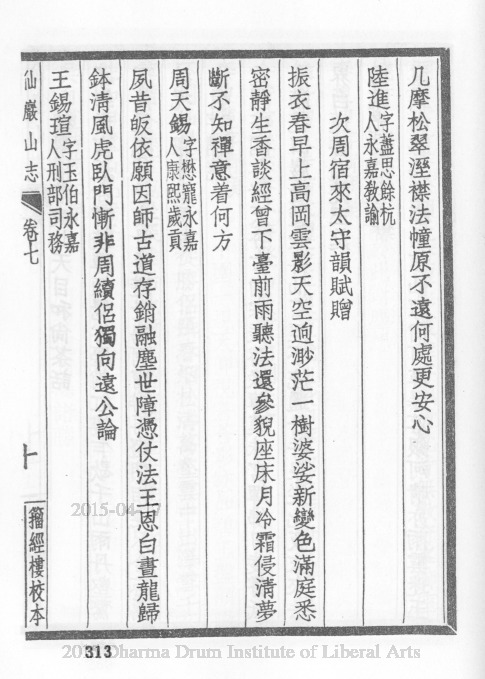 几摩松翠溼襟法幢原不遠何處更安心
陸進字藎思餘杭人永嘉敎諭
次周宿來太守韻賦贈
振衣春早上高岡雲影天空逈渺茫一樹婆娑新變色滿庭悉
密靜生香談經曾下臺前雨聽法還參猊座床月冷霜侵淸夢
斷不知禪意着何方
周天錫字懋寵永嘉人康熙歲貢
夙昔皈依願因師古道存銷融塵世障憑仗法王恩白晝龍歸
鉢淸風虎臥門慚非周續侶獨向遠公論
王錫瑄字玉伯永嘉人刑部司務
仙巖山志 卷七 十 籀經樓校本
2015-04-
313
Dharma Drum Institute of Liberal Arts